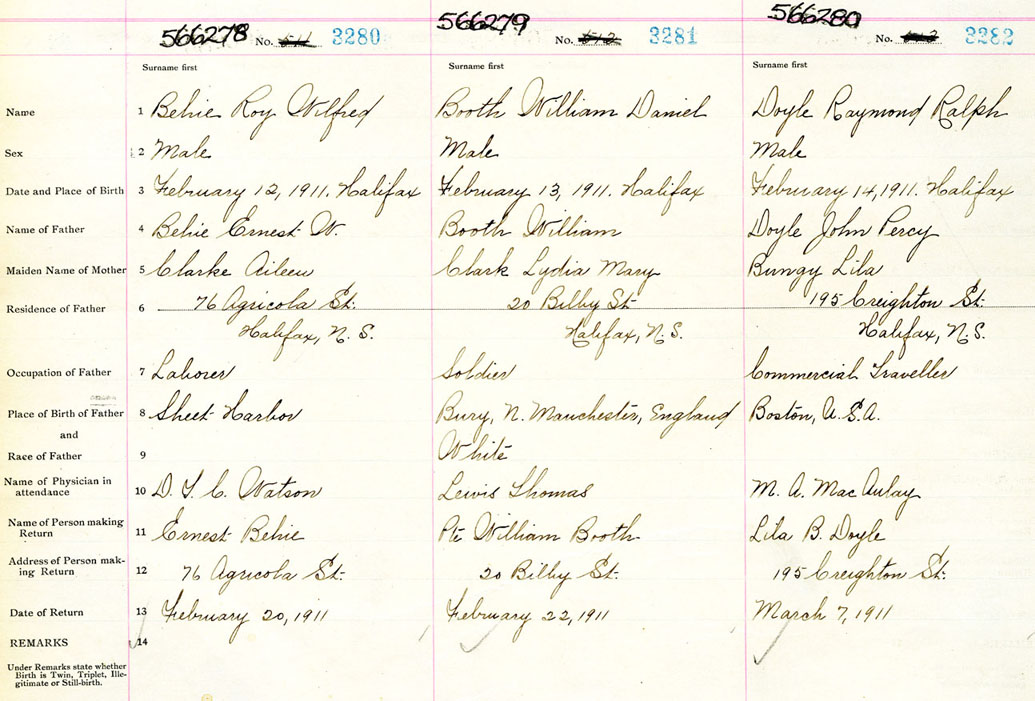 566278 No. 3280 566279 No. 3281 566280 No. 3282
Surname first Surname first Surname first
Name 1 Behie Roy Wilfred Booth William Daniel Doyle Raymond Ralph
Sex 2 Male Male Male
Date and Place of Birth 3 February 12, 1911. Halifax February 13, 1911. Halifax February 14, 1911. Halifax
Name of Father 4 Behie Ernest W. Booth William Doyle John Percy
Maiden Name of Mother 5 Clarke Aileen Clark Lydia Mary Bungy Lila
Residence of Father 6 76 Agricola St. 20 Bilby St. 195 Creighton St.
Halifax, N.S. Halifax, N.S. Halifax, N.S.
Occupation of Father 7 Laborer Soldier Commercial Traveller
Place of Birth of Father 8 Sheet Harbor Bury, N. Manchester, England Boston, U.S.A.
and
Race of Father 9 White
Name of Physician in
attendance 10 D. T. C. Watson Lewis Thomas M. A. MacAulay
Name of Person making
Return 11 Ernest Behie Pte William Booth Lila B. Doyle
Address of Person mak-
ing Return 12 76 Agricola St. 20 Bilby St. 195 Creighton St.
Date of Return 13 February 20, 1911 February 22, 1911 March 7, 1911
REMARKS 14
Under Remarks state whether
Birth is Twin, Triplet, Ille-
gitimate or Still-birth.